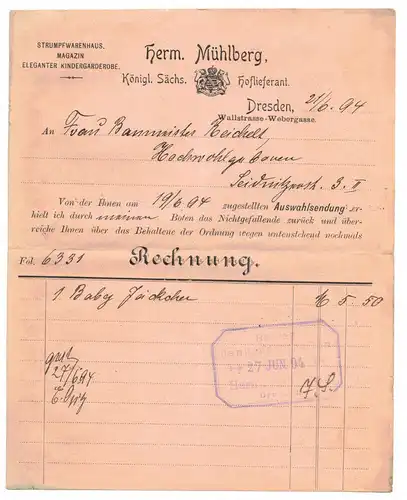 STRUMPFWARENHAUS.
MAGAZIN
ELEGANTER KINDERGARDEROBE.
Herm. Mühlberg,
Königl. Sächs. Hoflieferant.
Dresden, 21/6.94
Wallstrasse-Webergasse.
An Frau Baumeister Reichelt,
Hochwohlgeboren
Seidnitzerstr. 3. II
Von der Ihnen am 19/6 94 zugestellten Auswahlsendung er-
hielt ich durch meinen Boten das Nichtgefallende zurück und über-
reiche Ihnen über das Behaltene der Ordnung wegen untenstehend nochmals
Rechnung.
Fol. 6331
1 Baby Jäckchen M 5.50
27 JUN 94
27/6 94